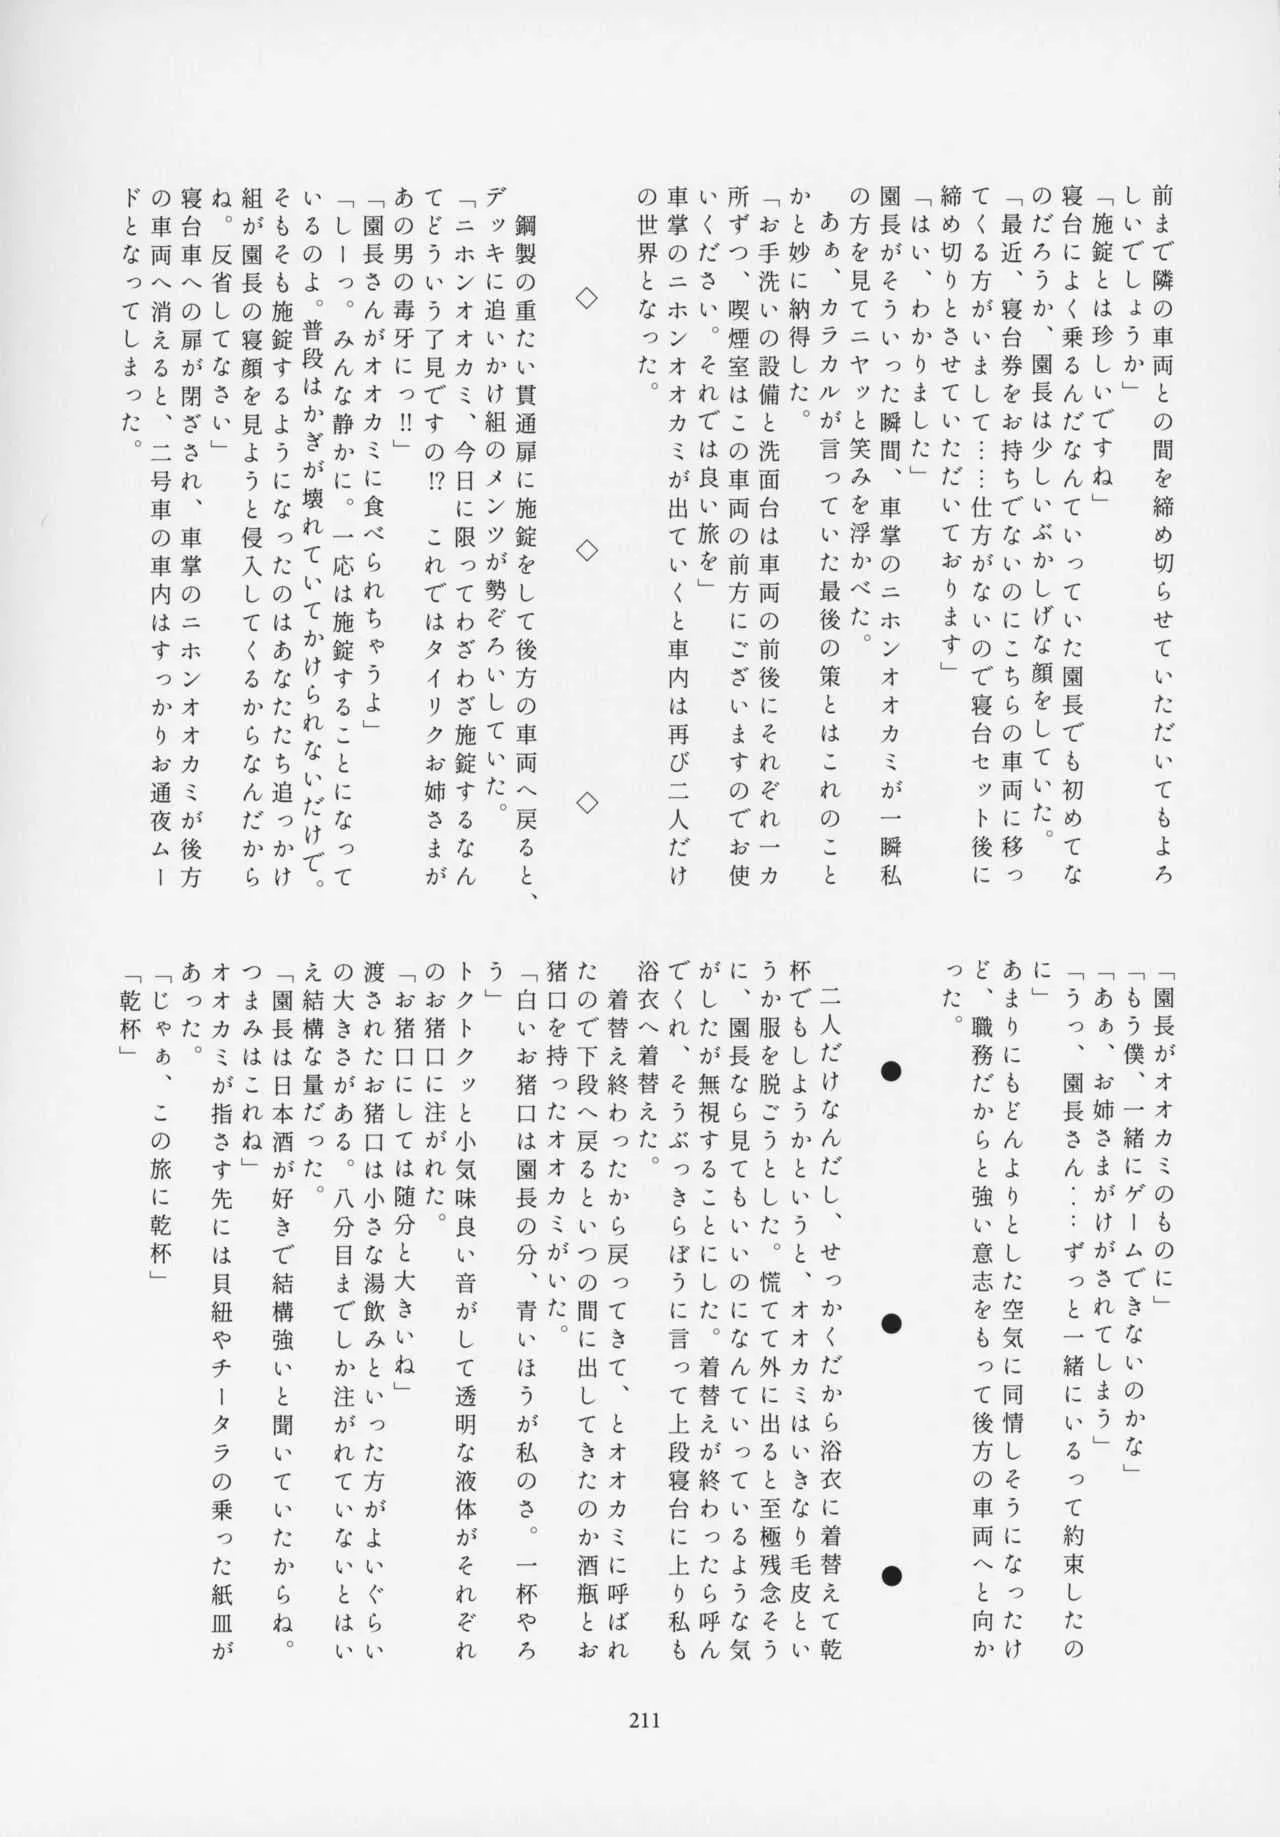 前まで隣の車両との間を締め切らせていただいてもよろ
しいでしょうか」
「施錠とは珍しいですね」
寝台によく乗るんだなんていっていた園長でも初めてな
のだろうか、園長は少しいぶかしげな顔をしていた。
「最近、寝台券をお持ちでないのにこちらの車両に移っ
てくる方がいまして……仕方がないので寝台セット後に
締め切りとさせていただいております」
「はい、わかりました」
園長がそういった瞬間、車掌のニホンオオカミが一瞬私
の方を見てニヤッと笑みを浮かべた。
あぁ、カラカルが言っていた最後の策とはこれのこと
かと妙に納得した。
「お手洗いの設備と洗面台は車両の前後にそれぞれ一カ
所ずつ、喫煙室はこの車両の前方にございますのでお使
いください。それでは良い旅を」
車掌のニホンオオカミが出ていくと車内は再び二人だけ
の世界となった。
◇　◇　◇
鋼製の重たい貫通扉に施錠をして後方の車両へ戻ると、
デッキに追いかけ組のメンツが勢ぞろいしていた。
「ニホンオオカミ、今日に限ってわざわざ施錠するなん
てどういう了見ですの!?　これではタイリクお姉さまが
あの男の毒牙にっ!!」
「園長さんがオオカミに食べられちゃうよ」
「しーっ。みんな静かに。一応は施錠することになって
いるのよ。普段はかぎが壊れていてかけられないだけで。
そもそも施錠するようになったのはあなたたち追っかけ
組が園長の寝顔を見ようと侵入してくるからなんだから
ね。反省してなさい」
寝台車への扉が閉ざされ、車掌のニホンオオカミが後方
の車両へ消えると、二号車の車内はすっかりお通夜ムー
ドとなってしまった。
「園長がオオカミのものに」
「もう僕、一緒にゲームできないのかな」
「あぁ、お姉さまがけがされてしまう」
「うっ、園長さん……ずっと一緒にいるって約束したの
に」
あまりにもどんよりとした空気に同情しそうになったけ
ど、職務だからと強い意志をもって後方の車両へと向か
った。
●　●　●
二人だけなんだし、せっかくだから浴衣に着替えて乾
杯でもしようかというと、オオカミはいきなり毛皮とい
うか服を脱ごうとした。慌てて外に出ると至極残念そう
に、園長なら見てもいいのになんていっているような気
がしたが無視することにした。着替えが終わったら呼ん
でくれ、そうぶっきらぼうに言って上段寝台に上り私も
浴衣へ着替えた。
着替え終わったから戻ってきて、とオオカミに呼ばれ
たので下段へ戻るといつの間に出してきたのか酒瓶とお
猪口を持ったオオカミがいた。
「白いお猪口は園長の分、青いほうが私のさ。一杯やろ
う」
トクトクッと小気味良い音がして透明な液体がそれぞれ
のお猪口に注がれた。
「お猪口にしては随分と大きいね」
渡されたお猪口は小さな湯飲みといった方がよいぐらい
の大きさがある。八分目までしか注がれていないとはい
え結構な量だった。
「園長は日本酒が好きで結構強いと聞いていたからね。
つまみはこれね」
オオカミが指さす先には貝紐やチータラの乗った紙皿が
あった。
「じゃぁ、この旅に乾杯」
「乾杯」
211